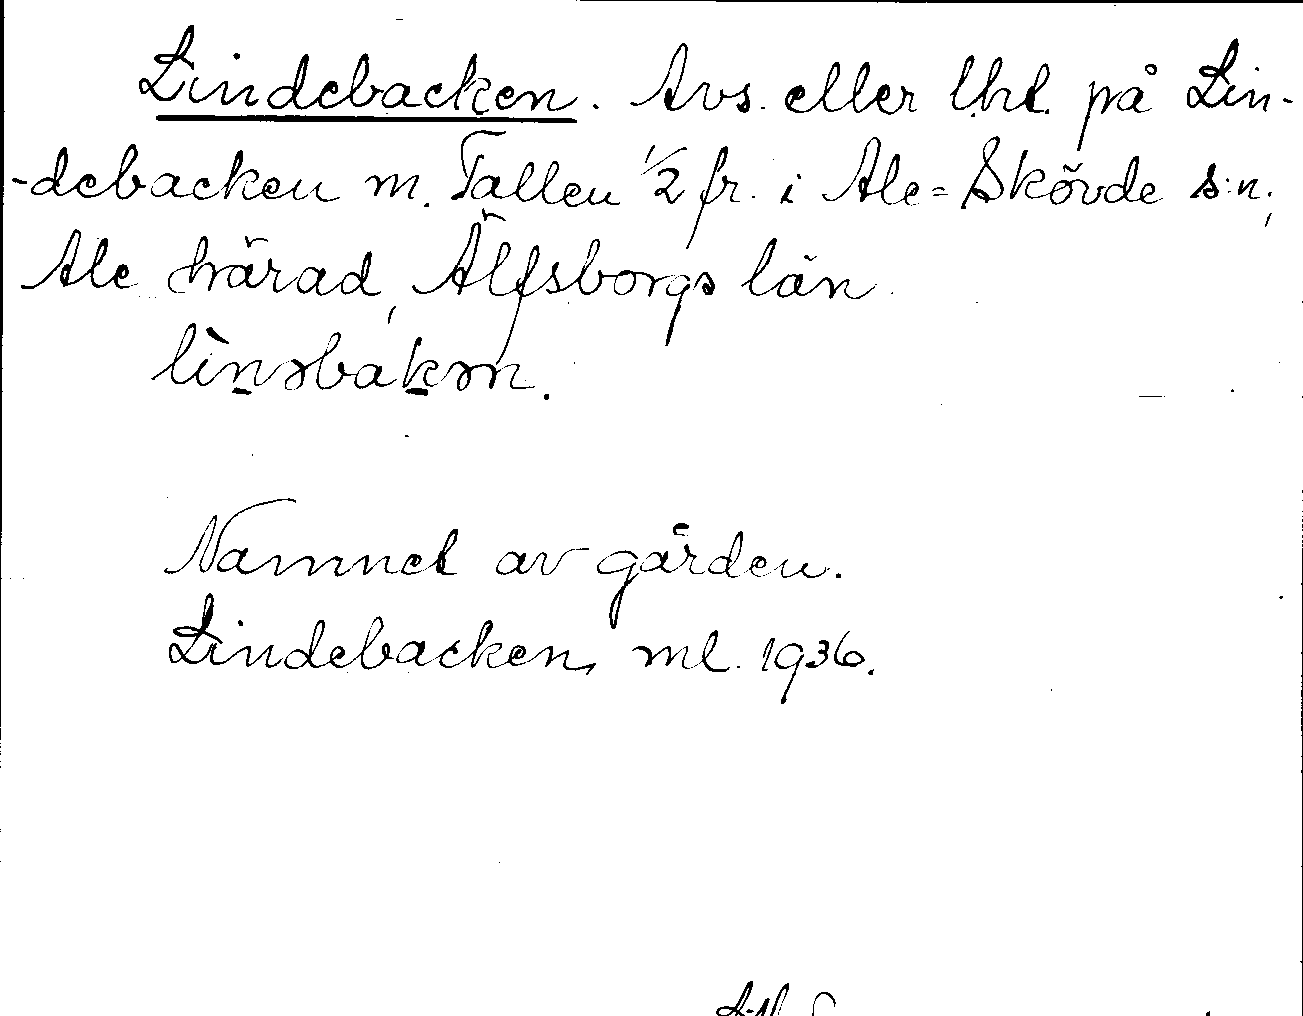 Lindebacken. Avs. eller lht. på Lin-
-debacken m. Tallen 1/2 fr. i Ale=Skövde s:n,
Ale härad, Älfsborgs län
lìnəbakən.
Namnet av gården.
Lindebacken, ml. 1936.